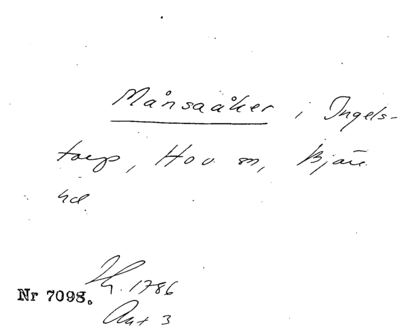 Månsaåker i Ingels-
torp, Hov sn, Bjäre
hd.
Nr 7098. 1786
Akt 3